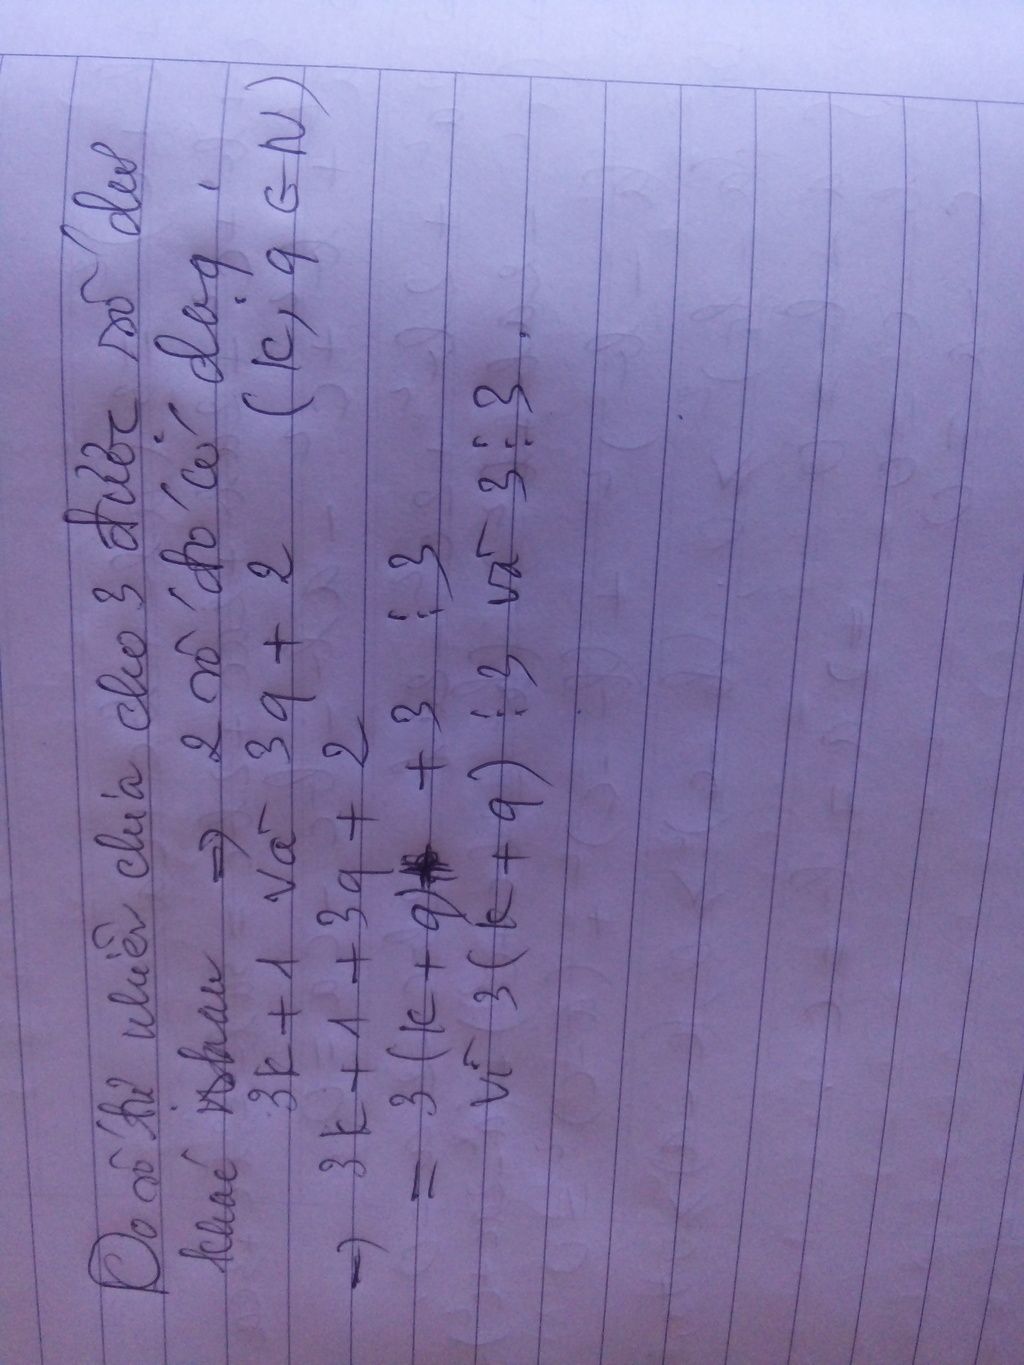 Do số tự nhiên chia cho 3 được số dư
khác nhau => 2 số đó có dạng:
3k + 1 và 3q + 2 (k, q ∈ N)
=> 3k + 1 + 3q + 2
= 3(k + q) + 3 ⋮ 3
Vì 3(k + q) ⋮ 3 và 3 ⋮ 3.